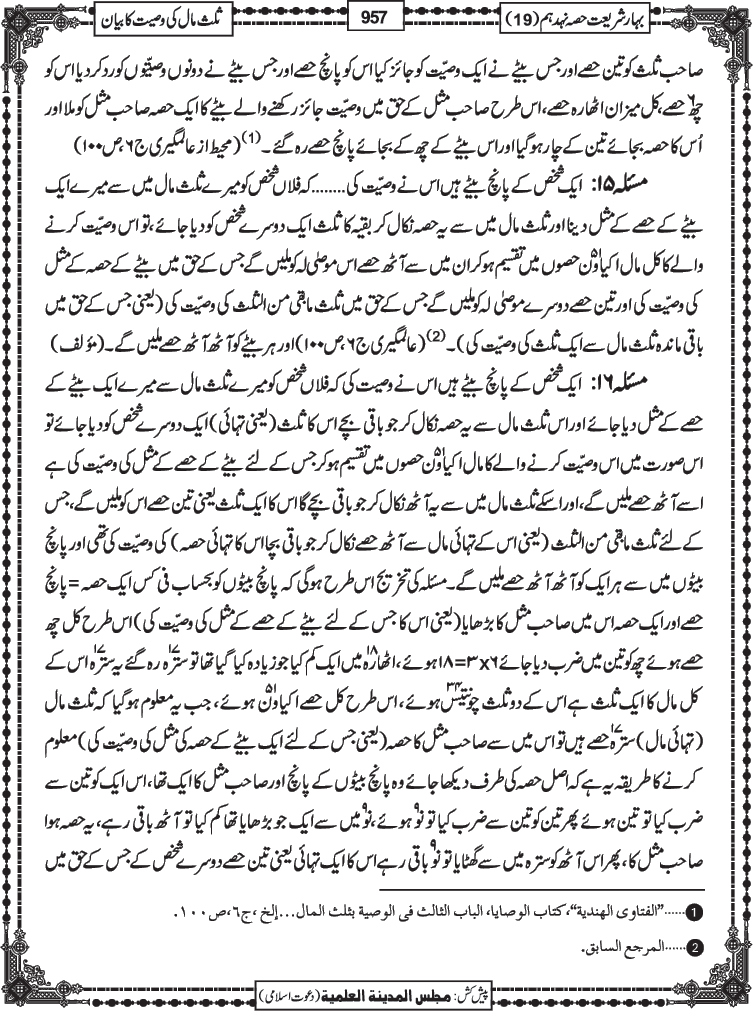 بہار شریعت حصہ نہدہم (19)
957
ثلث مال کی وصیت کا بیان
صاحب ثلث کو تین حصے اور جس بیٹے نے ایک وصیّت کو جائز کیا اس کو پانچ حصے اور جس بیٹے نے دونوں وصیّتوں کو رد کر دیا اس کو
چھ۶ حصے، کل میزان اٹھارہ حصے، اس طرح صاحب مثل کے حق میں وصیّت جائز رکھنے والے بیٹے کا ایک حصہ صاحب مثل کو ملا اور
اُس کا حصہ بجائے تین کے چار ہو گیا اور اس بیٹے کے چھ کے بجائے پانچ حصے رہ گئے ۔(1) (محیط از عالمگیری ج۶، ص۱۰۰)
مسئلہ ۱۵: ایک شخص کے پانچ بیٹے ہیں اس نے وصیت کی ........ کہ فلاں شخص کو میرے ثلث مال میں سے میرے ایک
بیٹے کے حصے کے مثل دینا اور ثلث مال میں سے یہ حصہ نکال کر بقیہ کا ثلث ایک دوسرے شخص کو دیا جائے، تو اس وصیّت کرنے
والے کا کل مال اکیاون۵۱ حصوں میں تقسیم ہو کر ان میں سے آٹھ حصے اس موصٰی لہ کو ملیں گے جس کے حق میں بیٹے کے حصہ کے مثل
کی وصیّت کی اور تین حصے دوسرے موصٰی لہ کو ملیں گے جس کے حق میں ثلث مابقی من الثلث کی وصیّت کی (یعنی جس کے حق میں
باقی ماندہ ثلث مال سے ایک ثلث کی وصیّت کی)۔(2) (عالمگیری ج۶، ص۱۰۰) اور ہر بیٹے کو آٹھ آٹھ حصے ملیں گے۔ (مؤلف)
مسئلہ ۱۶: ایک شخص کے پانچ بیٹے ہیں اس نے وصیت کی کہ فلاں شخص کو میرے ثلث مال سے میرے ایک بیٹے کے
حصے کے مثل دیا جائے اور اس ثلث مال سے یہ حصہ نکال کر جو باقی بچے اس کا ثلث (یعنی تہائی) ایک دوسرے شخص کو دیا جائے تو
اس صورت میں اس وصیّت کرنے والے کا مال اکیاون۵۱ حصوں میں تقسیم ہو کر جس کے لئے بیٹے کے حصے کے مثل کی وصیّت کی ہے
اسے آٹھ حصے ملیں گے، اور اسکے ثلث مال میں سے یہ آٹھ نکال کر جو باقی بچے گا اس کا ایک ثلث یعنی تین حصے اس کو ملیں گے، جس
کے لئے ثلث مابقی من الثلث (یعنی اس کے تہائی مال سے آٹھ حصے نکال کر جو باقی بچا اس کا تہائی حصہ) کی وصیّت کی تھی اور پانچ
بیٹوں میں سے ہر ایک کو آٹھ آٹھ حصے ملیں گے۔ مسئلہ کی تخریج اس طرح ہوگی کہ پانچ بیٹوں کو بحساب فی کس ایک حصہ = پانچ
حصے اور ایک حصہ اس میں صاحب مثل کا بڑھایا (یعنی اس کا جس کے لئے بیٹے کے حصے کے مثل کی وصیّت کی) اس طرح کل چھ
حصے ہوئے چھ کو تین میں ضرب دیا جائے ۶x۳=۱۸ ہوئے، اٹھارہ۱۸ میں ایک کم کیا جو زیادہ کیا گیا تھا تو سترہ۱۷ رہ گئے یہ سترہ۱۷ اس کے
کل مال کا ایک ثلث ہے اس کے دو ثلث چونتیس۳۴ ہوئے، اس طرح کل حصے اکیاون۵۱ ہوئے، جب یہ معلوم ہو گیا کہ ثلث مال
(تہائی مال) سترہ۱۷ حصے ہیں تو اس میں سے صاحب مثل کا حصہ (یعنی جس کے لئے ایک بیٹے کے حصہ کی مثل کی وصیّت کی) معلوم
کرنے کا طریقہ یہ ہے کہ اصل حصہ کی طرف دیکھا جائے وہ پانچ بیٹوں کے پانچ اور صاحب مثل کا ایک تھا، اس ایک کو تین سے
ضرب کیا تو تین ہوئے پھر تین کو تین سے ضرب کیا تو نو۹ ہوئے، نو۹ میں سے ایک جو بڑھایا تھا کم کیا تو آٹھ باقی رہے، یہ حصہ ہوا
صاحب مثل کا، پھر اس آٹھ کو سترہ میں سے گھٹایا تو نو۹ باقی رہے اس کا ایک تہائی یعنی تین حصے دوسرے شخص کے جس کے حق میں
1 ......"الفتاوی الھندیة"، کتاب الوصایا، الباب الثالث فی الوصیة بثلث المال...إلخ، ج٦، ص١٠٠.
2 ......المرجع السابق.
پیش کش: مجلس المدینة العلمیة (دعوتِ اسلامی)